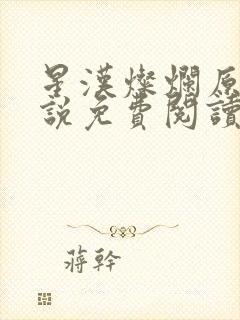 星漢燦爛原
說免費閱讀
蔣幹